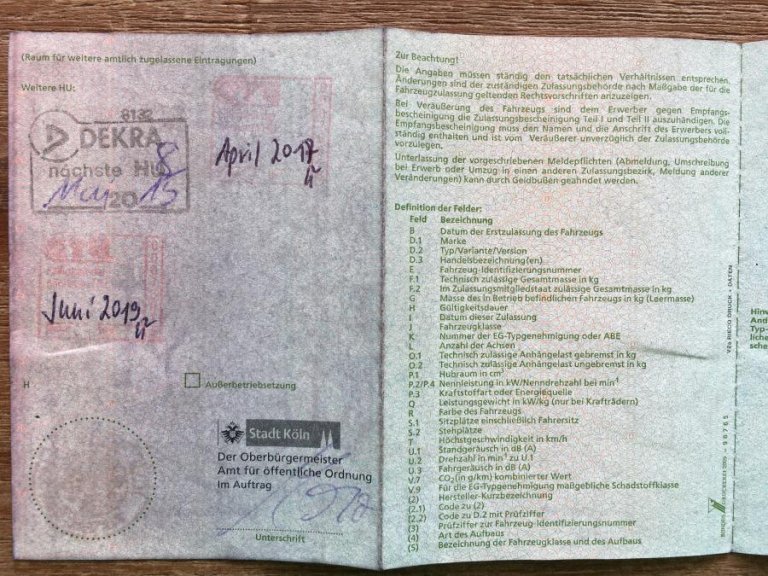 (Raum für weitere amtlich zugelassene Eintragungen)
Weitere HU:
8132
DEKRA
nächste HU
20
April 2017
Juni 2019
H
Außerbetriebsetzung
Stadt Köln
Der Oberbürgermeister
Amt für öffentliche Ordnung
Im Auftrag
Unterschrift
Zur Beachtung!
Die Angaben müssen ständig den tatsächlichen Verhältnissen entsprechen,
Änderungen sind der zuständigen Zulassungsbehörde nach Maßgabe der für die
Fahrzeugzulassung geltenden Rechtsvorschriften anzuzeigen.
Bei Veräußerung des Fahrzeugs sind dem Erwerber gegen Empfangs-
bescheinigung die Zulassungsbescheinigung Teil I und Teil II auszuhändigen. Die
Empfangsbescheinigung muss den Namen und die Anschrift des Erwerbers voll-
ständig enthalten und ist vom Veräußerer unverzüglich der Zulassungsbehörde
vorzulegen.
Unterlassung der vorgeschriebenen Meldepflichten (Abmeldung, Umschreibung
bei Erwerb oder Umzug in einen anderen Zulassungsbezirk, Meldung anderer
Veränderungen) kann durch Geldbußen geahndet werden.
Definition der Felder:
Feld Bezeichnung
B Datum der Erstzulassung des Fahrzeugs
D.1 Marke
D.2 Typ/Variante/Version
D.3 Handelsbezeichnung(en)
E Fahrzeug-Identifizierungsnummer
F.1 Technisch zulässige Gesamtmasse in kg
F.2 Im Zulassungsmitgliedstaat zulässige Gesamtmasse in kg
G Masse des in Betrieb befindlichen Fahrzeugs in kg (Leermasse)
H Gültigkeitsdauer
I Datum dieser Zulassung
J Fahrzeugklasse
K Nummer der EG-Typgenehmigung oder ABE
L Anzahl der Achsen
O.1 Technisch zulässige Anhängelast gebremst in kg
O.2 Technisch zulässige Anhängelast ungebremst in kg
P.1 Hubraum in cm³
P.2/P.4 Nennleistung in kW/Nenndrehzahl bei min⁻¹
P.3 Kraftstoffart oder Energiequelle
Q Leistungsgewicht in kW/kg (nur bei Krafträdern)
R Farbe des Fahrzeugs
S.1 Sitzplätze einschließlich Fahrersitz
S.2 Stehplätze
T Höchstgeschwindigkeit in km/h
U.1 Standgeräusch in dB (A)
U.2 Drehzahl in min⁻¹ zu U.1
U.3 Fahrgeräusch in dB (A)
V.7 CO₂(in g/km) kombinierter Wert
V.9 Für die EG-Typgenehmigung maßgebliche Schadstoffklasse
(2) Hersteller-Kurzbezeichnung
(2.1) Code zu (2)
(2.2) Code zu D.2 mit Prüfziffer
(3) Prüfziffer zur Fahrzeug-Identifizierungsnummer
(4) Art des Aufbaus
(5) Bezeichnung der Fahrzeugklasse und des Aufbaus